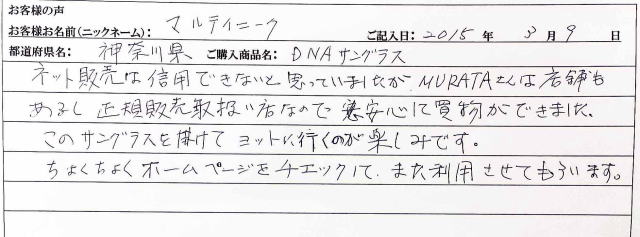 お客様の声
お客様お名前(ニックネーム): マルティニーク ご記入日: 2015 年 3 月 9 日
都道府県名: 神奈川県 ご購入商品名: DNAサングラス
ネット販売は信用できないと思っていましたが MURATAさんは店舗も
あるし 正規販売取扱い店なので 安心して買物ができました。
このサングラスを掛けて ヨットに行くのが楽しみです。
ちょくちょく ホームページをチエックして、また利用させてもらいます。